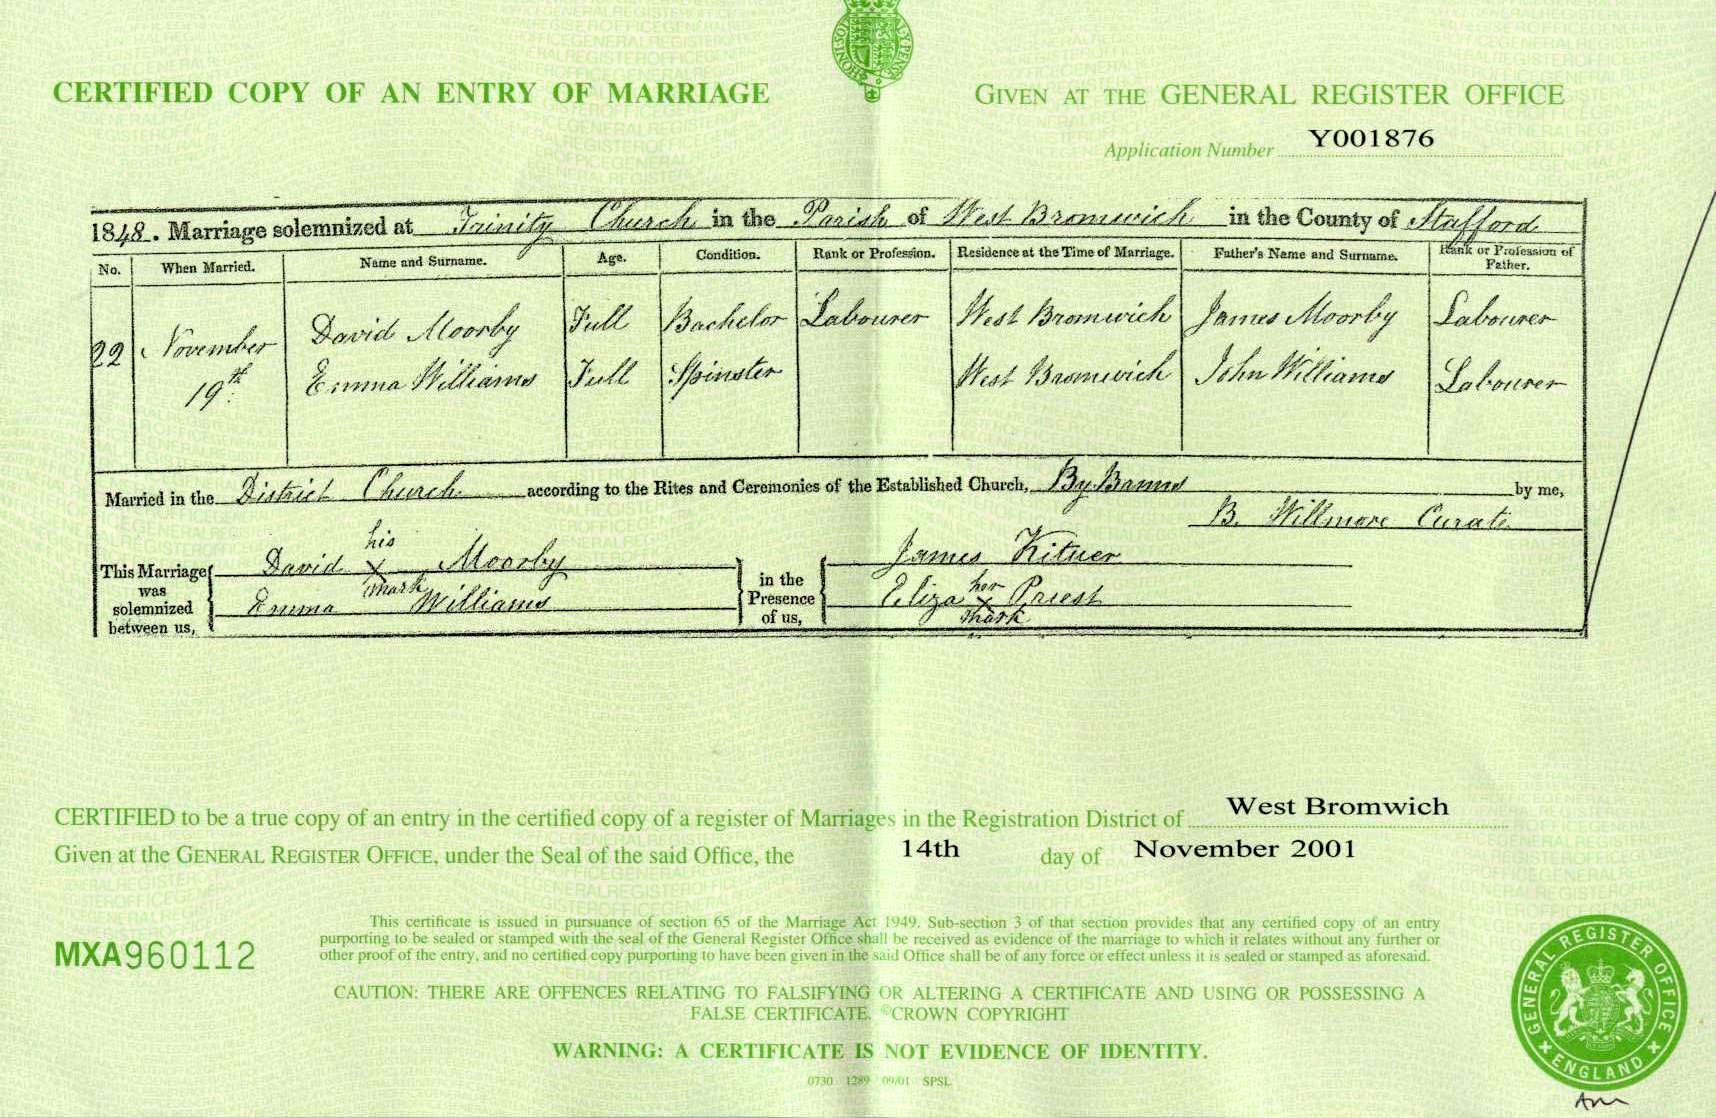 CERTIFIED COPY OF AN ENTRY OF MARRIAGE
GIVEN AT THE GENERAL REGISTER OFFICE
Application Number Y001876
1848. Marriage solemnized at Trinity Church in the Parish of West Bromwich in the County of Stafford
No. When Married. Name and Surname. Age. Condition. Rank or Profession. Residence at the Time of Marriage. Father's Name and Surname. Rank or Profession of Father.
22 November 19th David Moorby Full Bachelor Labourer West Bromwich James Moorby Labourer
Emma Williams Full Spinster West Bromwich John Williams Labourer
Married in the District Church according to the Rites and Ceremonies of the Established Church, By Banns by me,
B. Willmore Curate
This Marriage was solemnized between us,
David his X mark Moorby
Emma Williams
in the Presence of us,
James
Eliza her X mark Priest
CERTIFIED to be a true copy of an entry in the certified copy of a register of Marriages in the Registration District of West Bromwich
Given at the GENERAL REGISTER OFFICE, under the Seal of the said Office, the 14th day of November 2001
MXA960112
This certificate is issued in pursuance of section 65 of the Marriage Act 1949. Sub-section 3 of that section provides that any certified copy of an entry
purporting to be sealed or stamped with the seal of the General Register Office shall be received as evidence of the marriage to which it relates without any further or
other proof of the entry, and no certified copy purporting to have been given in the said Office shall be of any force or effect unless it is sealed or stamped as aforesaid.
CAUTION: THERE ARE OFFENCES RELATING TO FALSIFYING OR ALTERING A CERTIFICATE AND USING OR POSSESSING A
FALSE CERTIFICATE. ©CROWN COPYRIGHT
WARNING: A CERTIFICATE IS NOT EVIDENCE OF IDENTITY.
0730 1289 09/01 SPSL
GENERAL REGISTER OFFICE
ENGLAND